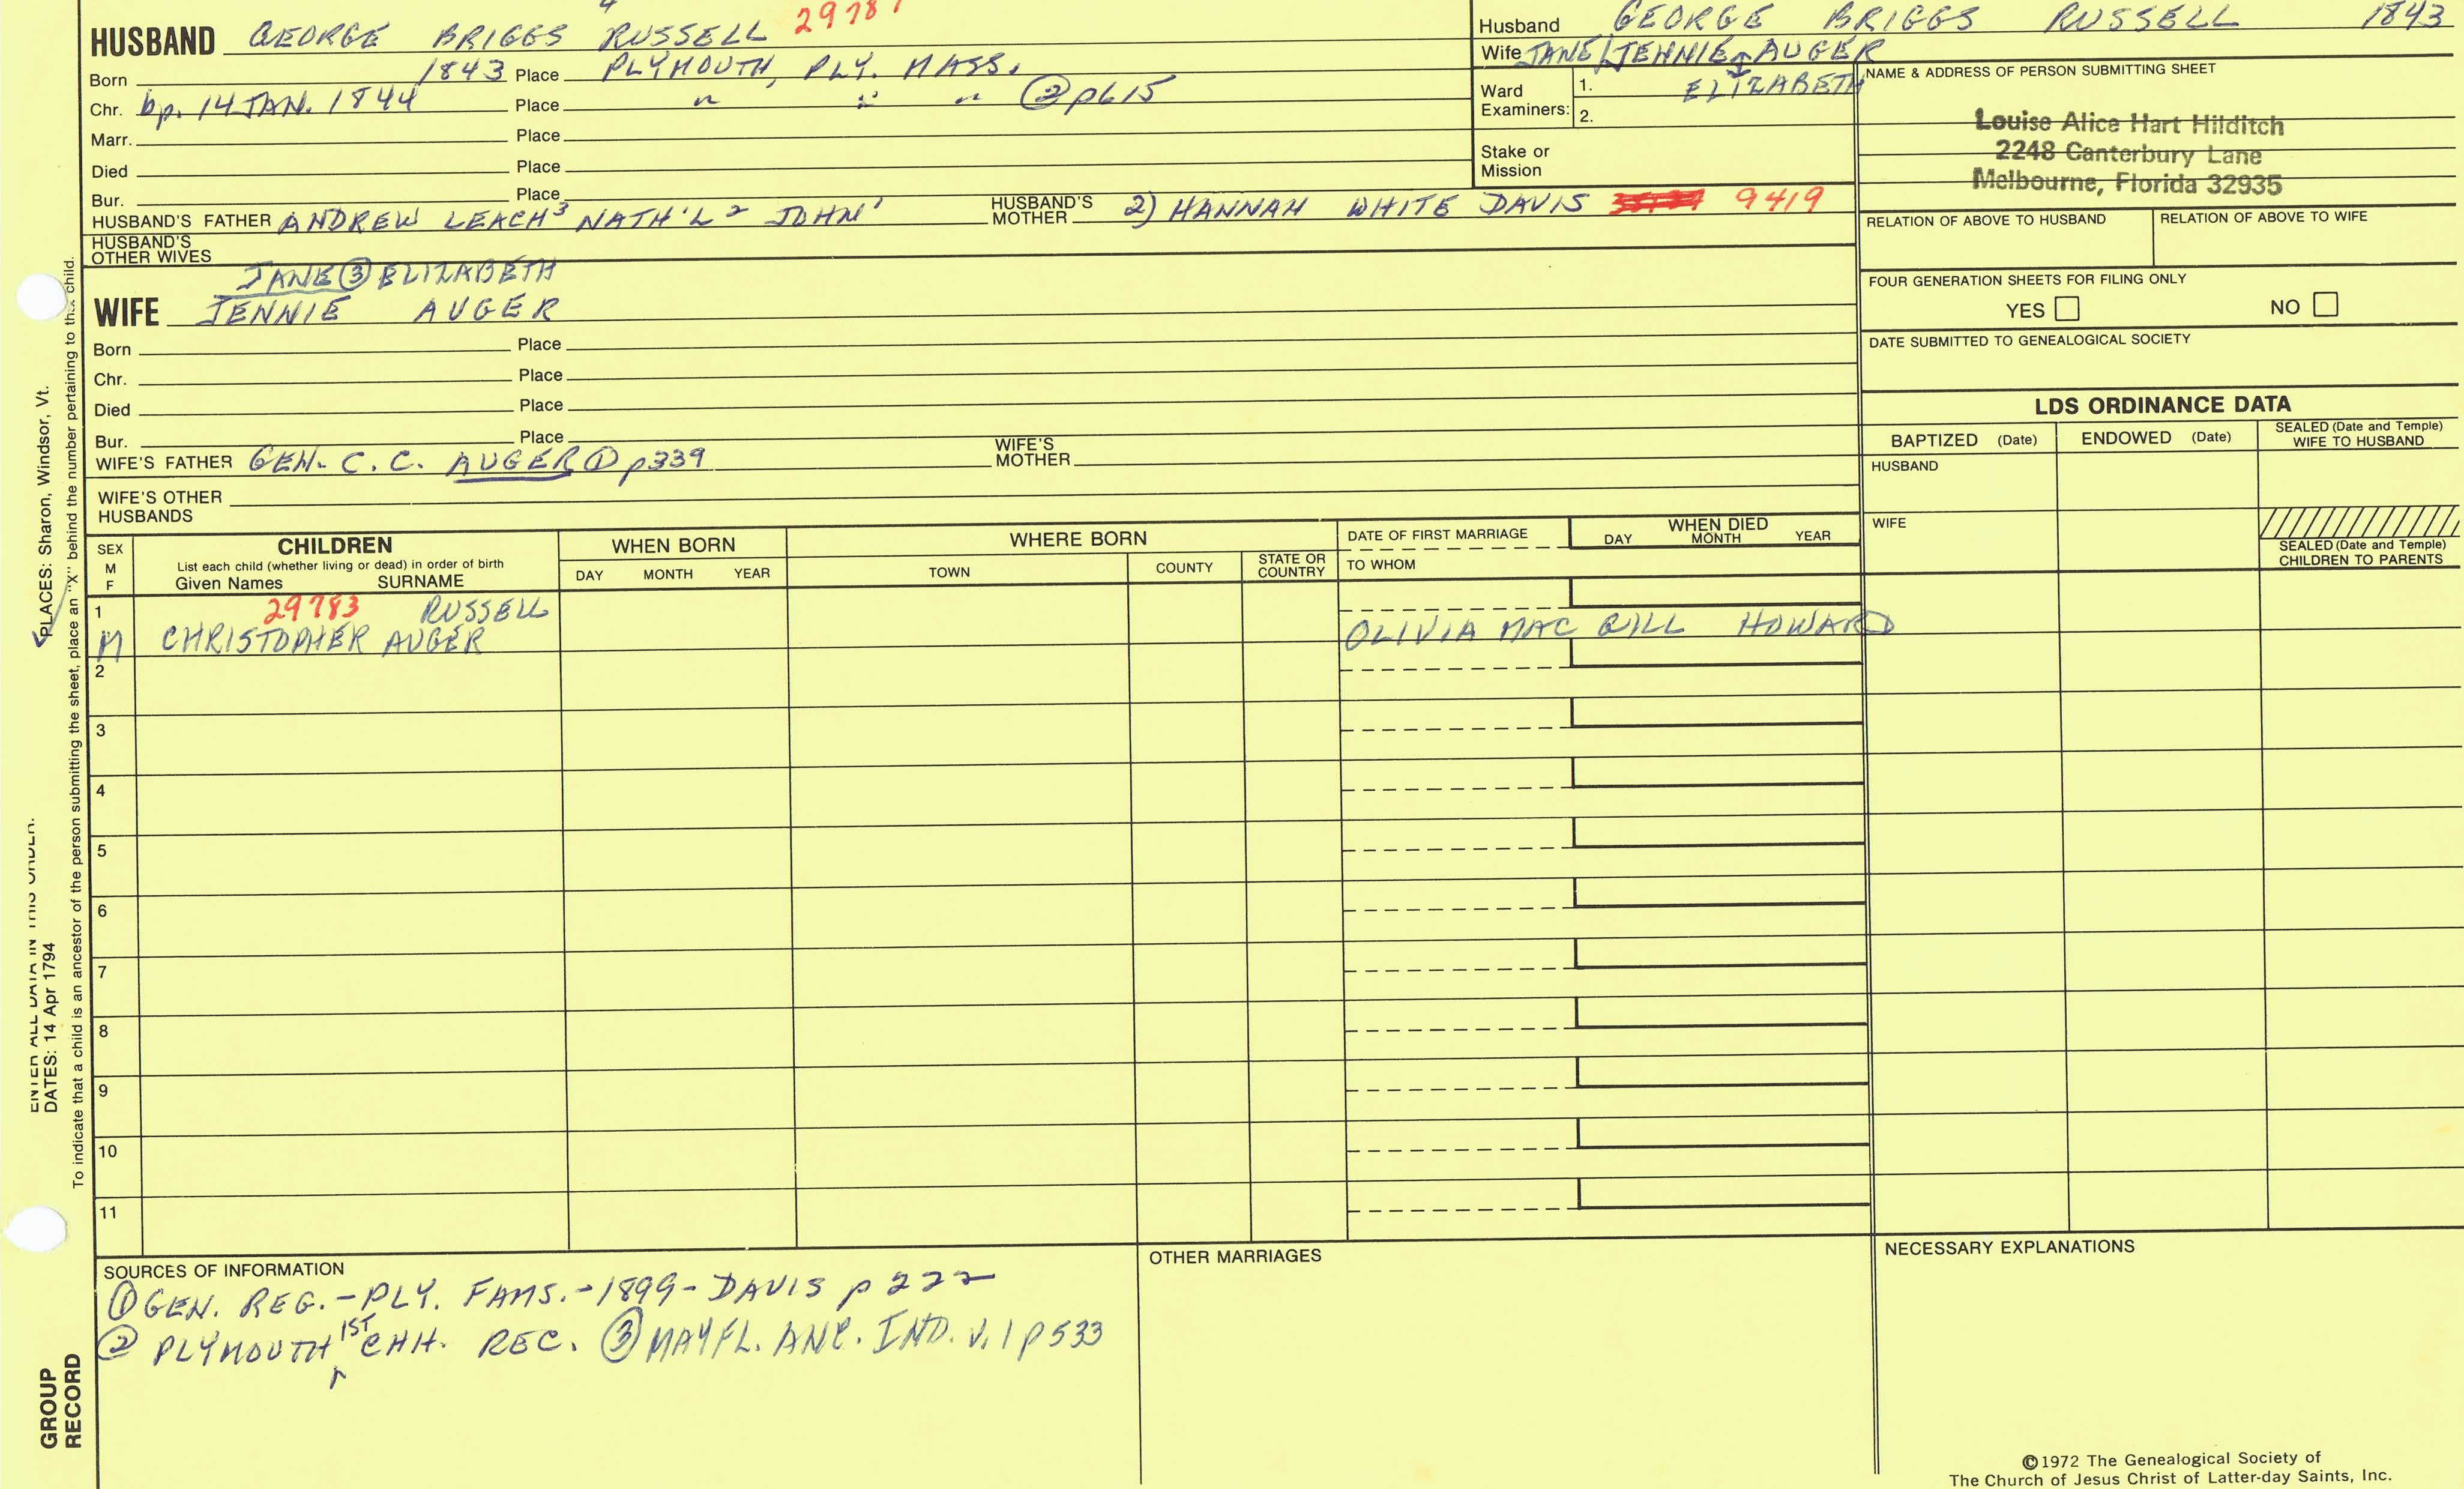 HUSBAND GEORGE BRIGGS RUSSELL 4
Born 1843 Place PLYMOUTH, PLY. MASS.
Chr. bp. 14 JAN. 1844 Place " " " ② p615
Marr. Place
Died Place
Bur. Place
HUSBAND'S FATHER ANDREW LEACH³ NATH'L² JOHN¹ HUSBAND'S MOTHER 2) HANNAH WHITE DAVIS 9419
HUSBAND'S OTHER WIVES
JANE ③ ELIZABETH
WIFE JENNIE AUGER
Born Place
Chr. Place
Died Place
Bur. Place
WIFE'S FATHER GEN. C. C. AUGER ① p339 WIFE'S MOTHER
WIFE'S OTHER HUSBANDS
Husband GEORGE BRIGGS RUSSELL 1843
Wife JANE/JENNIE AUGER
ELIZABETH
Ward Examiners: 1.
2.
Stake or Mission
NAME & ADDRESS OF PERSON SUBMITTING SHEET
Louise Alice Hart Hilditch
2248 Canterbury Lane
Melbourne, Florida 32935
RELATION OF ABOVE TO HUSBAND RELATION OF ABOVE TO WIFE
FOUR GENERATION SHEETS FOR FILING ONLY
YES NO
DATE SUBMITTED TO GENEALOGICAL SOCIETY
LDS ORDINANCE DATA
BAPTIZED (Date) ENDOWED (Date) SEALED (Date and Temple) WIFE TO HUSBAND
HUSBAND
WIFE
SEALED (Date and Temple) CHILDREN TO PARENTS
SEX M F
CHILDREN
List each child (whether living or dead) in order of birth
Given Names SURNAME
WHEN BORN
DAY MONTH YEAR
WHERE BORN
TOWN COUNTY STATE OR COUNTRY
DATE OF FIRST MARRIAGE
TO WHOM
WHEN DIED
DAY MONTH YEAR
1 29783 RUSSELL
M CHRISTOPHER AUGER OLIVIA MAC GILL HOWARD
2
3
4
5
6
7
8
9
10
11
SOURCES OF INFORMATION
① GEN. REG. - PLY. FAMS. - 1899 - DAVIS p 222
② PLYMOUTH 1ST CHH. REC. ③ MAYFL. ANC. IND. V. 1 p 533
OTHER MARRIAGES
NECESSARY EXPLANATIONS
©1972 The Genealogical Society of
The Church of Jesus Christ of Latter-day Saints, Inc.
PLACES: Sharon, Windsor, Vt.
ENTER ALL DATA IN THIS ORDER:
DATES: 14 Apr 1794
To indicate that a child is an ancestor of the person submitting the sheet, place an "X" behind the number pertaining to that child.
GROUP
RECORD